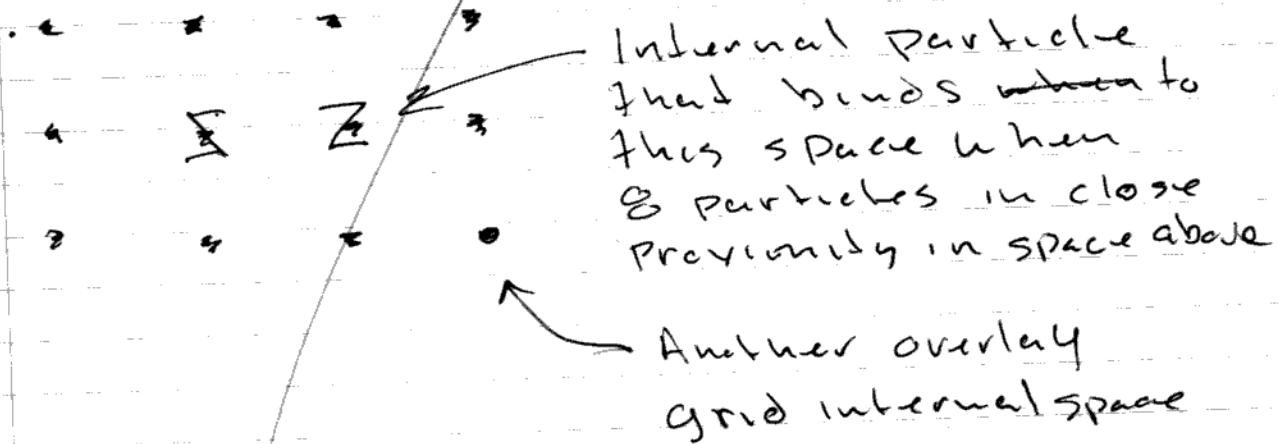 Σ Z
Internal particle
that binds when to
this space when
8 particles in close
proximity in space above
Another overlay
grid internal space